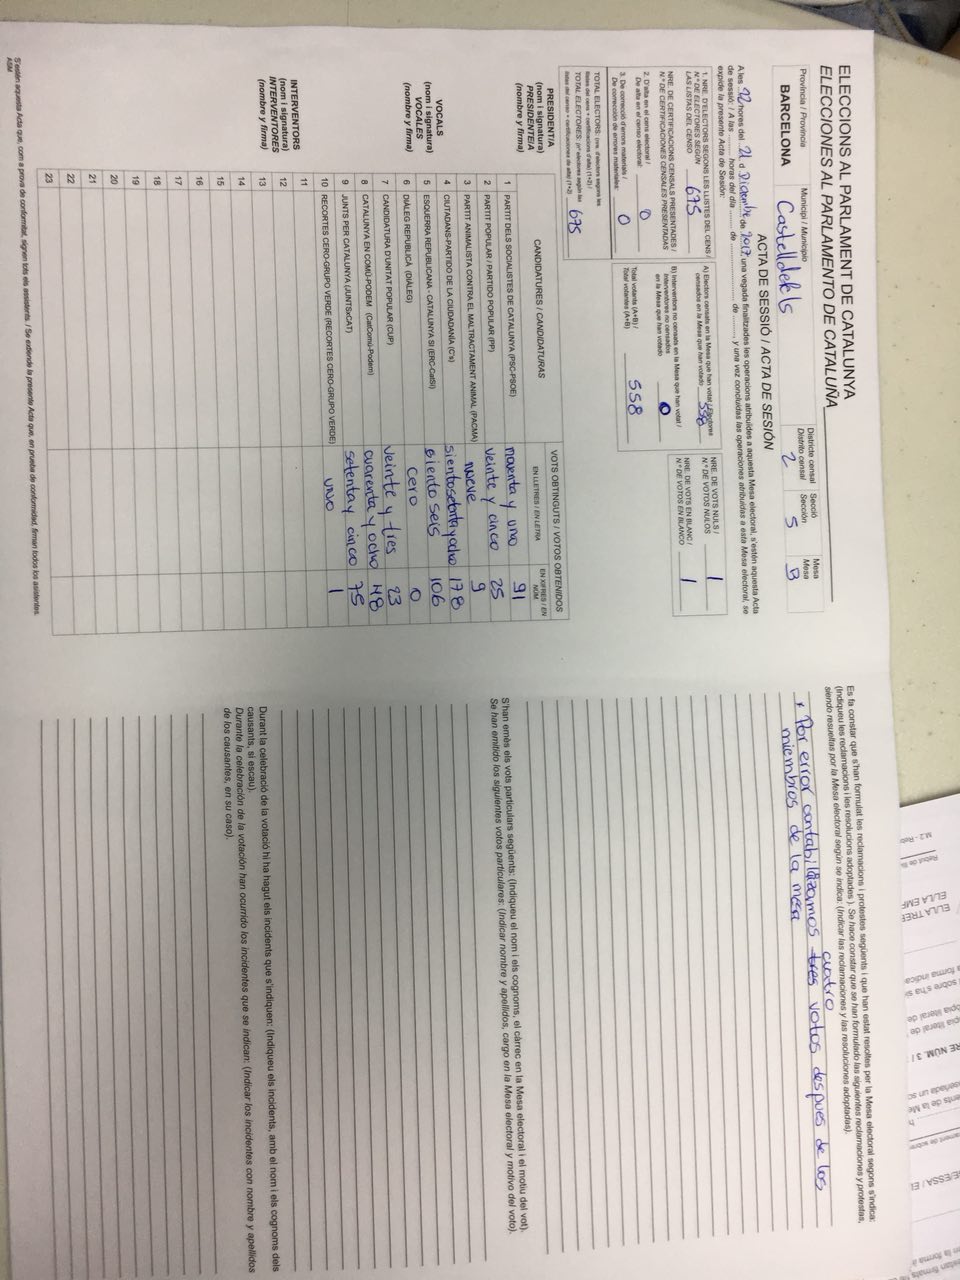 ELECCIONS AL PARLAMENT DE CATALUNYA
ELECCIONES AL PARLAMENTO DE CATALUÑA
Província / Provincia
BARCELONA
Municipi / Municipio
Castelldefels
Districte censal
Distrito censal
2
Secció
Sección
5
Mesa
Mesa
B
ACTA DE SESSIÓ / ACTA DE SESIÓN
A les 22 hores del 21 d Diciembre de 2017, una vegada finalitzades les operacions atribuïdes a aquesta Mesa electoral, s'estén aquesta Acta
de sessió: / A las ........ horas del día ........ de ........................ de ........ y una vez concluidas las operaciones atribuidas a esta Mesa electoral, se
expide la presente Acta de Sesión:
1. NRE. D'ELECTORS SEGONS LES LLISTES DEL CENS /
N.º DE ELECTORES SEGÚN
LAS LISTAS DEL CENSO 675
NRE. DE CERTIFICACIONS CENSALS PRESENTADES /
N.º DE CERTIFICACIONES CENSALES PRESENTADAS
2. D'alta en el cens electoral /
De alta en el censo electoral: 0
3. De correcció d'errors materials /
De corrección de errores materiales: 0
TOTAL ELECTORS: (nre. d'electors segons les
llistes del cens + certificacions d'alta) (1+2) /
TOTAL ELECTORES: (nº electores según las
listas del censo + certificaciones de alta) (1+2) 675
A) Electors censats en la Mesa que han votat / Electores
censados en la Mesa que han votado 558
B) Interventors no censats en la Mesa que han votat /
Interventores no censados
en la Mesa que han votado 0
Total votants (A+B) /
Total votantes (A+B) 558
NRE. DE VOTS NULS /
N.º DE VOTOS NULOS 1
NRE. DE VOTS EN BLANC /
N.º DE VOTOS EN BLANCO 1
CANDIDATURES / CANDIDATURAS
VOTS OBTINGUTS / VOTOS OBTENIDOS
EN LLETRES / EN LETRA
EN XIFRES / EN NÚM.
1 PARTIT DELS SOCIALISTES DE CATALUNYA (PSC-PSOE) noventa y uno 91
2 PARTIT POPULAR / PARTIDO POPULAR (PP) veinte y cinco 25
3 PARTIT ANIMALISTA CONTRA EL MALTRACTAMENT ANIMAL (PACMA) nueve 9
4 CIUTADANS-PARTIDO DE LA CIUDADANÍA (C's) siento setenta y ocho 178
5 ESQUERRA REPUBLICANA - CATALUNYA SÍ (ERC-CatSí) ciento seis 106
6 DIÀLEG REPUBLICÀ (DIÀLEG) cero 0
7 CANDIDATURA D'UNITAT POPULAR (CUP) veinte y tres 23
8 CATALUNYA EN COMÚ-PODEM (CatComú-Podem) cuarenta y ocho 48
9 JUNTS PER CATALUNYA (JUNTSxCAT) setenta y cinco 75
10 RECORTES CERO-GRUPO VERDE (RECORTES CERO-GRUPO VERDE) uno 1
11
12
13
14
15
16
17
18
19
20
21
22
23
PRESIDENT/A
(nom i signatura)
PRESIDENTE/A
(nombre y firma)
VOCALS
(nom i signatura)
VOCALES
(nombre y firma)
INTERVENTORS
(nom i signatura)
INTERVENTORES
(nombre y firma)
S'estén aquesta Acta que, com a prova de conformitat, signen tots els assistents. / Se extiende la presente Acta que, en prueba de conformidad, firman todos los asistentes.
Es fa constar que s'han formulat les reclamacions i protestes següents i que han estat resoltes per la Mesa electoral segons s'indica:
(Indiqueu les reclamacions i les resolucions adoptades). Se hace constar que se han formulado las siguientes reclamaciones y protestas,
siendo resueltas por la Mesa electoral según se indica: (Indicar las reclamaciones y las resoluciones adoptadas).
cuatro
* Por error contabilizamos tres votos despues de los
miembros de la mesa
S'han emès els vots particulars següents: (Indiqueu el nom i els cognoms, el càrrec en la Mesa electoral i el motiu del vot).
Se han emitido los siguientes votos particulares: (Indicar nombre y apellidos, cargo en la Mesa electoral y motivo del voto).
Durant la celebració de la votació hi ha hagut els incidents que s'indiquen: (Indiqueu els incidents, amb el nom i els cognoms dels
causants, si escau).
Durante la celebración de la votación han ocurrido los incidentes que se indican: (Indicar los incidentes con nombre y apellidos
de los causantes, en su caso).